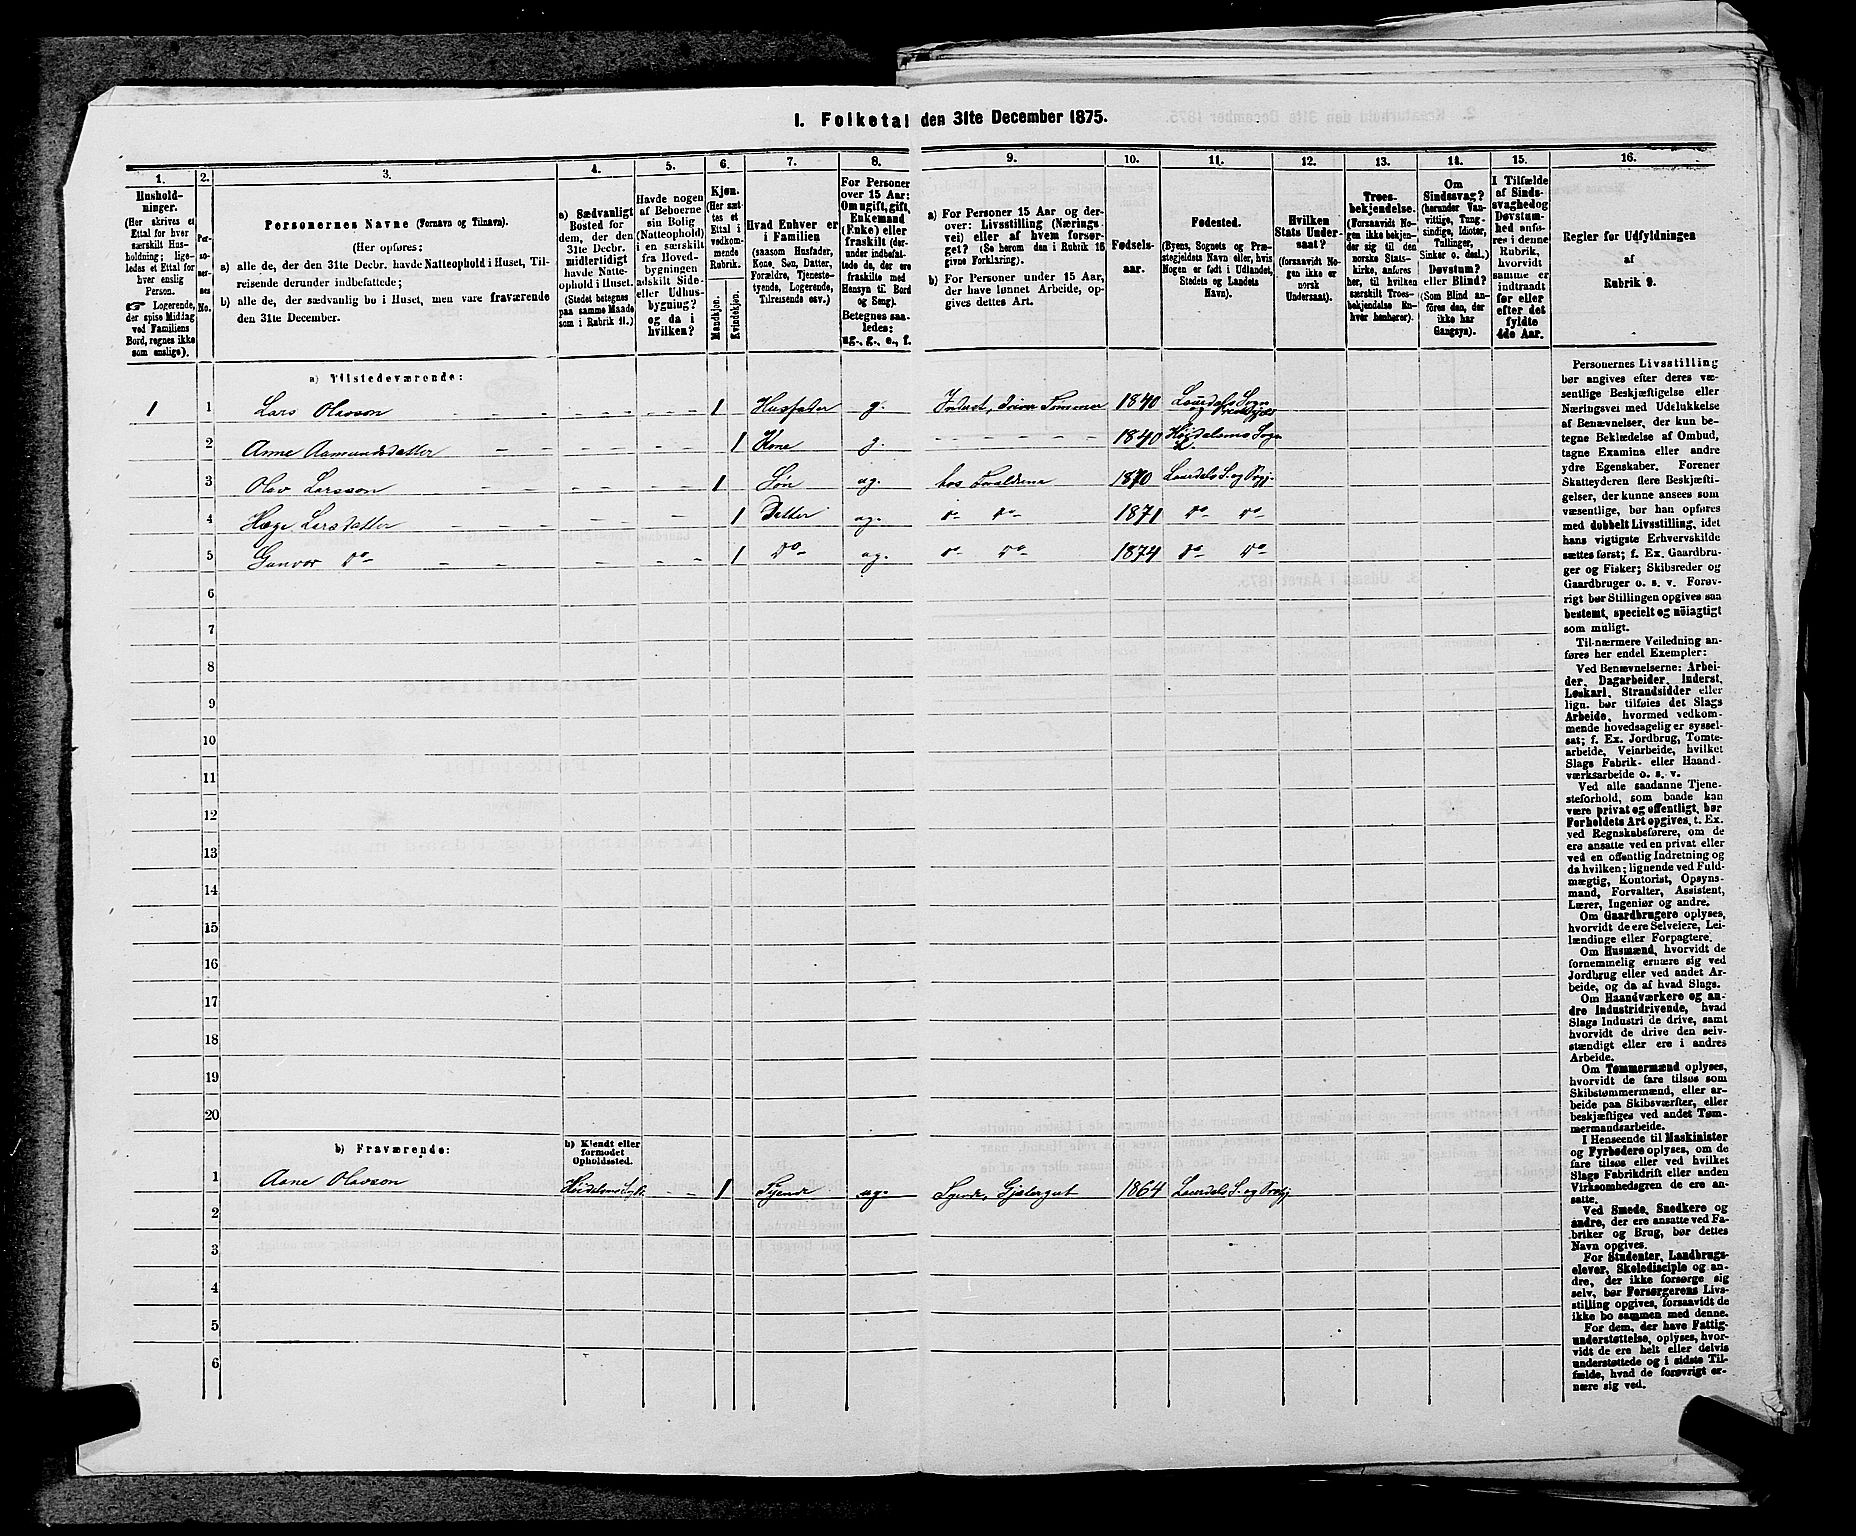 I. Folketal den 31te December 1875.
1.
Husholdninger.
(Her skrives et
Ettal for hver
særskilt Husholdning; ligeledes et Ettal for
hver enslig
Person.
Logerende,
der spise Middag
ved Familiens
Bord, regnes ikke
som enslige).
2.
Personernes
No.
3.
Personernes Navne (Fornavn og Tilnavn).
(Her opføres:
a) alle de, der den 31te Decbr. havde Natteophold i Huset, Tilreisende derunder indbefattede;
b) alle de, der sædvanlig bo i Huset, men vare fraværende
den 31te December.
4.
a) Sædvanligt
Bosted for
dem, der den
31te Decbr.
midlertidigt
havde Natteophold i Huset.
(Stedet betegnes
paa samme Maade
som i Rubrik 11.)
5.
Havde nogen
af Beboerne
sin Bolig
(Natteophold)
i en særskilt
fra Hovedbygningen
adskilt Side-
eller Udhusbygning?
og da i
hvilken?
6.
Kjøn.
(Her sættes et
Ettal i
vedkommende
Rubrik.
Mandkjøn.
Kvindekjøn.
7.
Hvad Enhver er
i Familien
(saasom Husfader,
Kone, Søn, Datter,
Forældre, Tjenestetyende, Logerende,
Tilreisende osv.)
8.
For Personer
over 15 Aar:
Om ugift, gift,
Enkemand
(Enke) eller
fraskilt (derunder indbefattede de, der ere
fraskilte med
Hensyn til Bord
og Seng).
Betegnes saaledes:
ug., g., e., f.
9.
a) For Personer 15 Aar og derover: Livsstilling (Næringsvei) eller af hvem forsørget? (Se herom den i Rubrik 16
givne Forklaring).
b) For Personer under 15 Aar,
der have lønnet Arbeide, opgives dettes Art.
10.
Fødselsaar.
11.
Fødested.
(Byens, Sognets og Præstegjeldets Navn eller, hvis
Nogen er født i Udlandet,
Stedets og Landets
Navn).
12.
Hvilken
Stats Undersaat?
(forsaavidt Nogen ikke er
norsk
Undersaat).
13.
Troesbekjendelse.
(Forsaavidt Nogen ikke bekjender sig til den
norske Statskirke, anføres
her, til hvilken
særskilt Troesbekjendelse Enhver henhører).
14.
Om
Sindssvag?
(herunder Vanvittige, Tungsindige, Idioter,
Tullinger,
Sinker o. desl.)
Døvstum?
eller Blind?
(Som Blind anføres den, der
ikke har
Gangsyn).
15.
I Tilfælde
af Sindssvaghed og
Døvstumhed anføres i denne
Rubrik,
hvorvidt
samme er
indtraadt
før eller
efter det
fyldte
4de Aar.
16.
Regler for Udfyldningen
af
Rubrik 9.
a) Tilstedeværende:
1 1 Lars Olavson 1 Husfader g. Inderst, driver Tømmer 1840 Laurdals Sogn og Præstegj.
2 Anne Aamundsdatter 1 Kone g. 1840 Høydalsmo Sogn
3 Olav Larsson 1 Søn ug. hos Forældrene 1870 Laurdals S. og Prgj.
4 Hæge Larsdatter 1 Datter ug. do do 1871 do do
5 Gunvor do 1 do ug. do do 1874 do do
6
7
8
9
10
11
12
13
14
15
16
17
18
19
20
b) Fraværende:
b) Kjendt eller
formodet
Opholdssted.
1 Aane Olavson 1 Tjener ug. Tjener, Gjætergut 1864 Laurdals S. og Prstgj
2
3
4
5
6
Personernes Livsstilling
bør angives efter deres væsentlige Beskjæftigelse eller
Næringsvei med Udelukkelse
af Benævnelser, der kun betegne Beklædelse af Ombud,
tagne Examina eller andre
ydre Egenskaber. Forener
Skatteyderen flere Beskjæftigelser, der kunne ansees som
væsentlige, bør han opføres
med dobbelt Livsstilling, idet
hans vigtigste Erhvervskilde
sættes først; f. Ex. Gaardbruger og Fisker; Skibsreder og
Gaardbruger o. s. v. Forøvrigt bør Stillingen opgives saa
bestemt, specielt og nöiagtigt
som muligt.
Til nærmere Veiledning anføres her endel Exempler:
Ved Benævnelserne: Arbeider, Dagarbeider, Inderst,
Løskarl, Strandsidder eller
lign. bør tilføies det Slags
Arbeide, hvormed vedkommende hovedsagelig er sysselsat; f. Ex. Jordbrug, Tomtearbeide, Veiarbeide, hvilket
Slags Fabrik- eller Haandværksarbeide o. s. v.
Ved alle saadanne Tjenesteforhold, som baade kan
være privat og offentligt, bør
Forholdets Art opgives, t. Ex.
ved Regnskabsførere, om de
ere ansatte ved en privat eller
ved en offentlig Indretning og
da hvilken; lignende ved Fuldmægtig, Kontorist, Opsynsmand, Forvalter, Assistent,
Lærer, Ingeniør og andre.
Om Gaardbrugere oplyses,
hvorvidt de ere Selveiere, Leilændinge eller Forpagtere.
Om Husmænd, hvorvidt de
fornemmelig ernære sig ved
Jordbrug eller ved andet Arbeide, og da af hvad Slags.
Om Haandværkere og andre Industridrivende, hvad
Slags Industri de drive, samt
hvorvidt de drive den selvstændigt eller ere i andres
Arbeide.
Om Tømmermænd oplyses,
hvorvidt de fare tilsøs som
Skibstømmermænd, eller arbeide paa Skibsværfter, eller
beskjæftiges ved andet Tømmermandsarbeide.
I Henseende til Maskinister
og Fyrbødere oplyses, om de
fare tilsøs eller ved hvilket
Slags Fabrikdrift eller anden
Virksomhedsgren de ere ansatte.
Ved Smede, Snedkere og
andre, der ere ansatte ved Fabriker og Brug, bør dettes
Navn opgives.
For Studenter, Landbrugselever, Skoledisciple og andre, der ikke forsørge sig
selv, bør Forsørgerens Livsstilling opgives, forsaavidt de
ikke bo sammen med denne.
For dem, der have Fattigunderstøttelse, oplyses, hvorvidt de ere helt eller delvis
understøttede og i sidste Tilfælde, hvad de forøvrigt ernære sig ved.